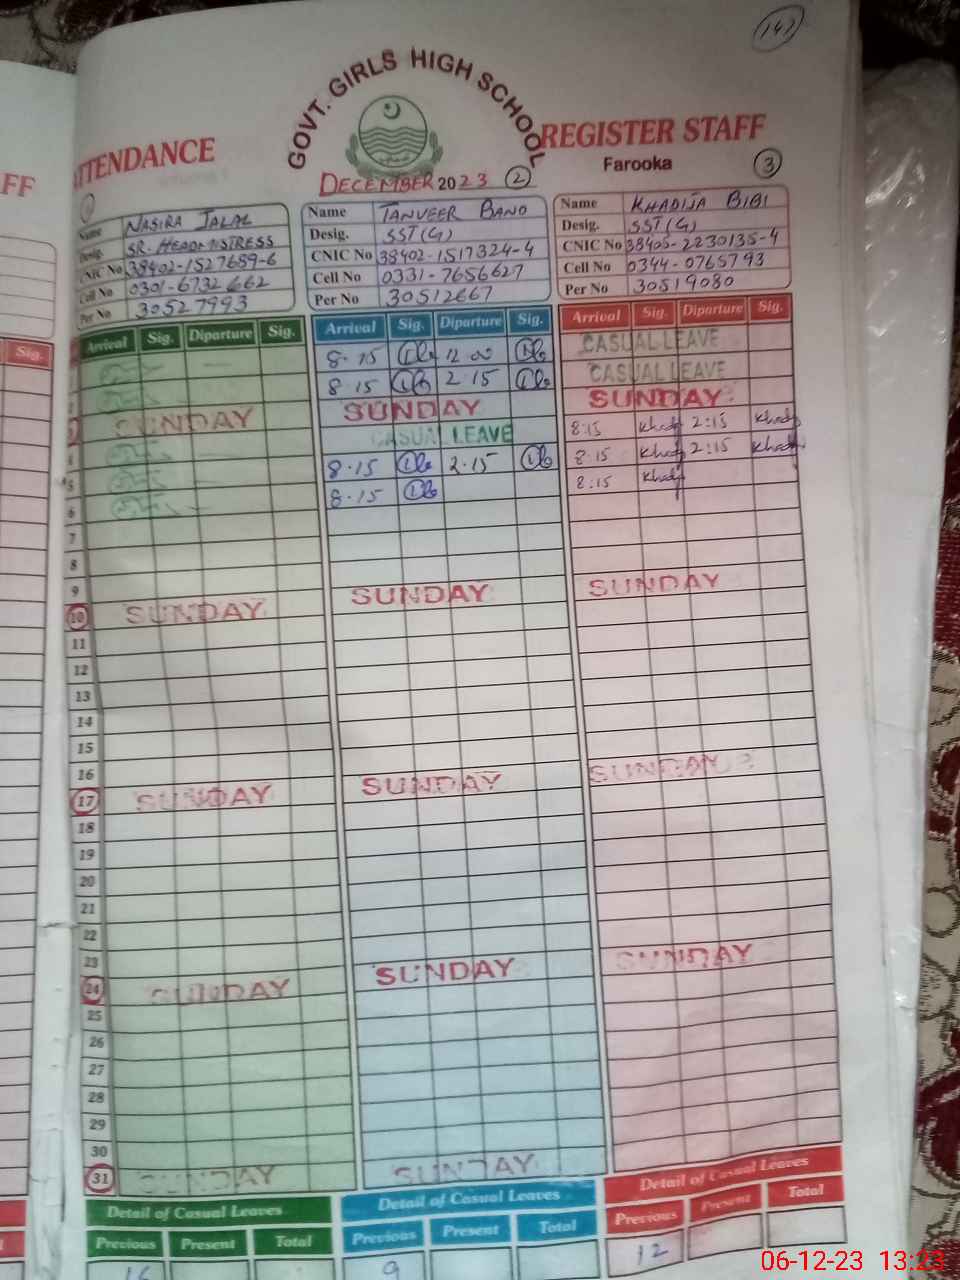 147
GOVT. GIRLS HIGH SCHOOL
ATTENDANCE
REGISTER STAFF
Farooka
DECEMBER 2023
2
3
FF
Sig.
Name NASIRA JALAL
Desig. SR. HEADMISTRESS
CNIC No 38402-1527689-6
Cell No 0301-6732662
Per No 30527993
Name TANVEER BANO
Desig. SST(G)
CNIC No 38402-1517324-4
Cell No 0331-7656627
Per No 30512667
Name KHADIJA BIBI
Desig. SST(G)
CNIC No 38405-2230135-4
Cell No 0344-0765793
Per No 30519080
Arrival Sig. Diparture Sig. Arrival Sig. Diparture Sig. Arrival Sig. Diparture Sig.
8.15 12 00 CASUAL LEAVE
8.15 2.15 CASUAL LEAVE
3 SUNDAY SUNDAY SUNDAY
4 CASUAL LEAVE 8:15 Khadij 2:15 Khadij
5 8.15 2.15 8.15 Khadij 2:15 Khadij
6 8.15 8:15 Khadij
7
8
9
10 SUNDAY SUNDAY SUNDAY
11
12
13
14
15
16
17 SUNDAY SUNDAY SUNDAY
18
19
20
21
22
23
24 SUNDAY SUNDAY SUNDAY
25
26
27
28
29
30
31 SUNDAY SUNDAY
Detail of Casual Leaves Detail of Casual Leaves Detail of Casual Leaves
Previous Present Total Previous Present Total Previous Present Total
16 9 12
06-12-23 13:23